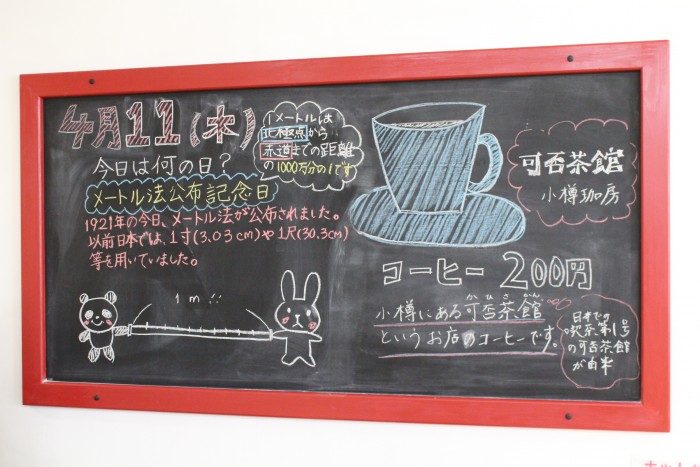 4月11(木)
1メートルは
北極点から
赤道までの距離
の1000万分の1です
今日は何の日?
メートル法公布記念日
1921年の今日、メートル法が公布されました。
以前日本では、1寸(3.03cm)や1尺(30.3cm)
等を用いていました。
1m!!
可否茶館
小樽珈房
コーヒー 200円
かひさかん
小樽にある可否茶館
というお店のコーヒーです。
日本での
喫茶第1号
の可否茶館
が由来